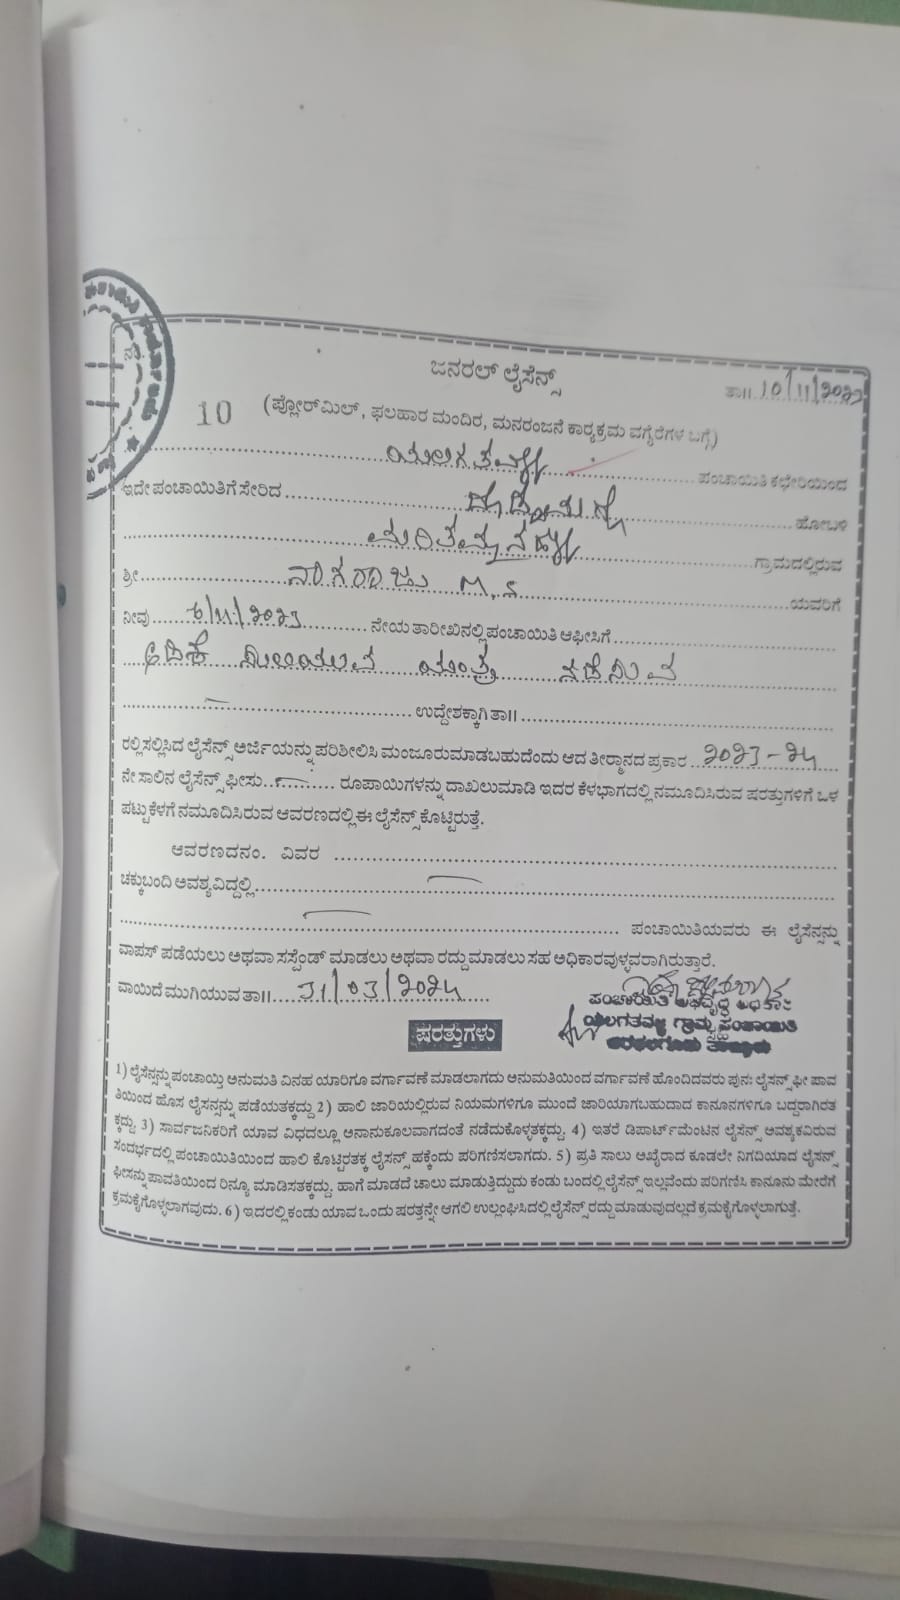 ಜನರಲ್ ಲೈಸೆನ್ಸ್
ನಂ. 10 ತಾ॥ 10/11/2023
(ಪ್ಲೋರ್‌ಮಿಲ್, ಫಲಹಾರ ಮಂದಿರ, ಮನರಂಜನೆ ಕಾರ್‍ಯಕ್ರಮ ವಗೈರೆಗಳ ಬಗ್ಗೆ)
ಪಂಚಾಯಿತಿ ಕಛೇರಿಯಿಂದ
ಇದೇ ಪಂಚಾಯಿತಿಗೆ ಸೇರಿದ ಹೋಬಳಿ
ಗ್ರಾಮದಲ್ಲಿರುವ
ಶ್ರೀ ನಾಗರಾಜು M.S ಯವರಿಗೆ
ನೀವು 6/11/2023 ನೇಯ ತಾರೀಖಿನಲ್ಲಿ ಪಂಚಾಯಿತಿ ಆಫೀಸಿಗೆ
ಅಡಿಕೆ ಸುಲಿಯುವ ಯಂತ್ರ ನಡೆಸುವ
ಉದ್ದೇಶಕ್ಕಾಗಿ ತಾ॥
ರಲ್ಲಿ ಸಲ್ಲಿಸಿದ ಲೈಸೆನ್ಸ್ ಅರ್ಜಿಯನ್ನು ಪರಿಶೀಲಿಸಿ ಮಂಜೂರುಮಾಡಬಹುದೆಂದು ಆದ ತೀರ್ಮಾನದ ಪ್ರಕಾರ 2023-24
ನೇ ಸಾಲಿನ ಲೈಸೆನ್ಸ್ ಫೀಸು ರೂಪಾಯಿಗಳನ್ನು ದಾಖಲುಮಾಡಿ ಇದರ ಕೆಳಭಾಗದಲ್ಲಿ ನಮೂದಿಸಿರುವ ಷರತ್ತುಗಳಿಗೆ ಒಳ
ಪಟ್ಟು ಕೆಳಗೆ ನಮೂದಿಸಿರುವ ಆವರಣದಲ್ಲಿ ಈ ಲೈಸೆನ್ಸ್ ಕೊಟ್ಟಿರುತ್ತೆ.
ಆವರಣದನಂ. ವಿವರ
ಚಕ್ಕುಬಂದಿ ಅವಶ್ಯವಿದ್ದಲ್ಲಿ
ಪಂಚಾಯಿತಿಯವರು ಈ ಲೈಸೆನ್ಸನ್ನು
ವಾಪಸ್ ಪಡೆಯಲು ಅಥವಾ ಸಸ್ಪೆಂಡ್ ಮಾಡಲು ಅಥವಾ ರದ್ದುಮಾಡಲು ಸಹ ಅಧಿಕಾರವುಳ್ಳವರಾಗಿರುತ್ತಾರೆ.
ವಾಯಿದೆ ಮುಗಿಯುವ ತಾ॥ 31/03/2024
ಪಂಚಾಯಿತಿ ಅಭಿವೃದ್ಧಿ ಅಧಿಕಾರಿ
ಯಲಗತವಳ್ಳಿ ಗ್ರಾಮ ಪಂಚಾಯಿತಿ
ಷರತ್ತುಗಳು
1) ಲೈಸೆನ್ಸನ್ನು ಪಂಚಾಯ್ತಿ ಅನುಮತಿ ವಿನಹ ಯಾರಿಗೂ ವರ್ಗಾವಣೆ ಮಾಡಲಾಗದು ಅನುಮತಿಯಿಂದ ವರ್ಗಾವಣೆ ಹೊಂದಿದವರು ಪುನಃ ಲೈಸೆನ್ಸ್ ಫೀ ಪಾವ
ತಿಯಿಂದ ಹೊಸ ಲೈಸನ್ಸನ್ನು ಪಡೆಯತಕ್ಕದ್ದು 2) ಹಾಲಿ ಜಾರಿಯಲ್ಲಿರುವ ನಿಯಮಗಳಿಗೂ ಮುಂದೆ ಜಾರಿಯಾಗಬಹುದಾದ ಕಾನೂನಗಳಿಗೂ ಬದ್ದರಾಗಿರತ
ಕ್ಕದ್ದು. 3) ಸಾರ್ವಜನಿಕರಿಗೆ ಯಾವ ವಿಧದಲ್ಲೂ ಅನಾನುಕೂಲವಾಗದಂತೆ ನಡೆದುಕೊಳ್ಳತಕ್ಕದ್ದು. 4) ಇತರೆ ಡಿಪಾರ್ಟ್‌ಮೆಂಟಿನ ಲೈಸೆನ್ಸ್ ಆವಶ್ಯಕವಿರುವ
ಸಂದರ್ಭದಲ್ಲಿ ಪಂಚಾಯಿತಿಯಿಂದ ಹಾಲಿ ಕೊಟ್ಟಿರತಕ್ಕ ಲೈಸನ್ಸ್ ಹಕ್ಕೆಂದು ಪರಿಗಣಿಸಲಾಗದು. 5) ಪ್ರತಿ ಸಾಲು ಆಖೈರಾದ ಕೂಡಲೇ ನಿಗದಿಯಾದ ಲೈಸನ್ಸ್
ಫೀಸನ್ನು ಪಾವತಿಯಿಂದ ರಿನ್ಯೂ ಮಾಡಿಸತಕ್ಕದ್ದು. ಹಾಗೆ ಮಾಡದೆ ಚಾಲು ಮಾಡುತ್ತಿದ್ದುದು ಕಂಡು ಬಂದಲ್ಲಿ ಲೈಸೆನ್ಸ್ ಇಲ್ಲವೆಂದು ಪರಿಗಣಿಸಿ ಕಾನೂನು ಮೇರೆಗೆ
ಕ್ರಮಕೈಗೊಳ್ಳಲಾಗವುದು. 6) ಇದರಲ್ಲಿ ಕಂಡು ಯಾವ ಒಂದು ಷರತ್ತನ್ನೇ ಆಗಲಿ ಉಲ್ಲಂಘಿಸಿದಲ್ಲಿ ಲೈಸೆನ್ಸ್ ರದ್ದು ಮಾಡುವುದಲ್ಲದೆ ಕ್ರಮಕೈಗೊಳ್ಳಲಾಗುತ್ತೆ.